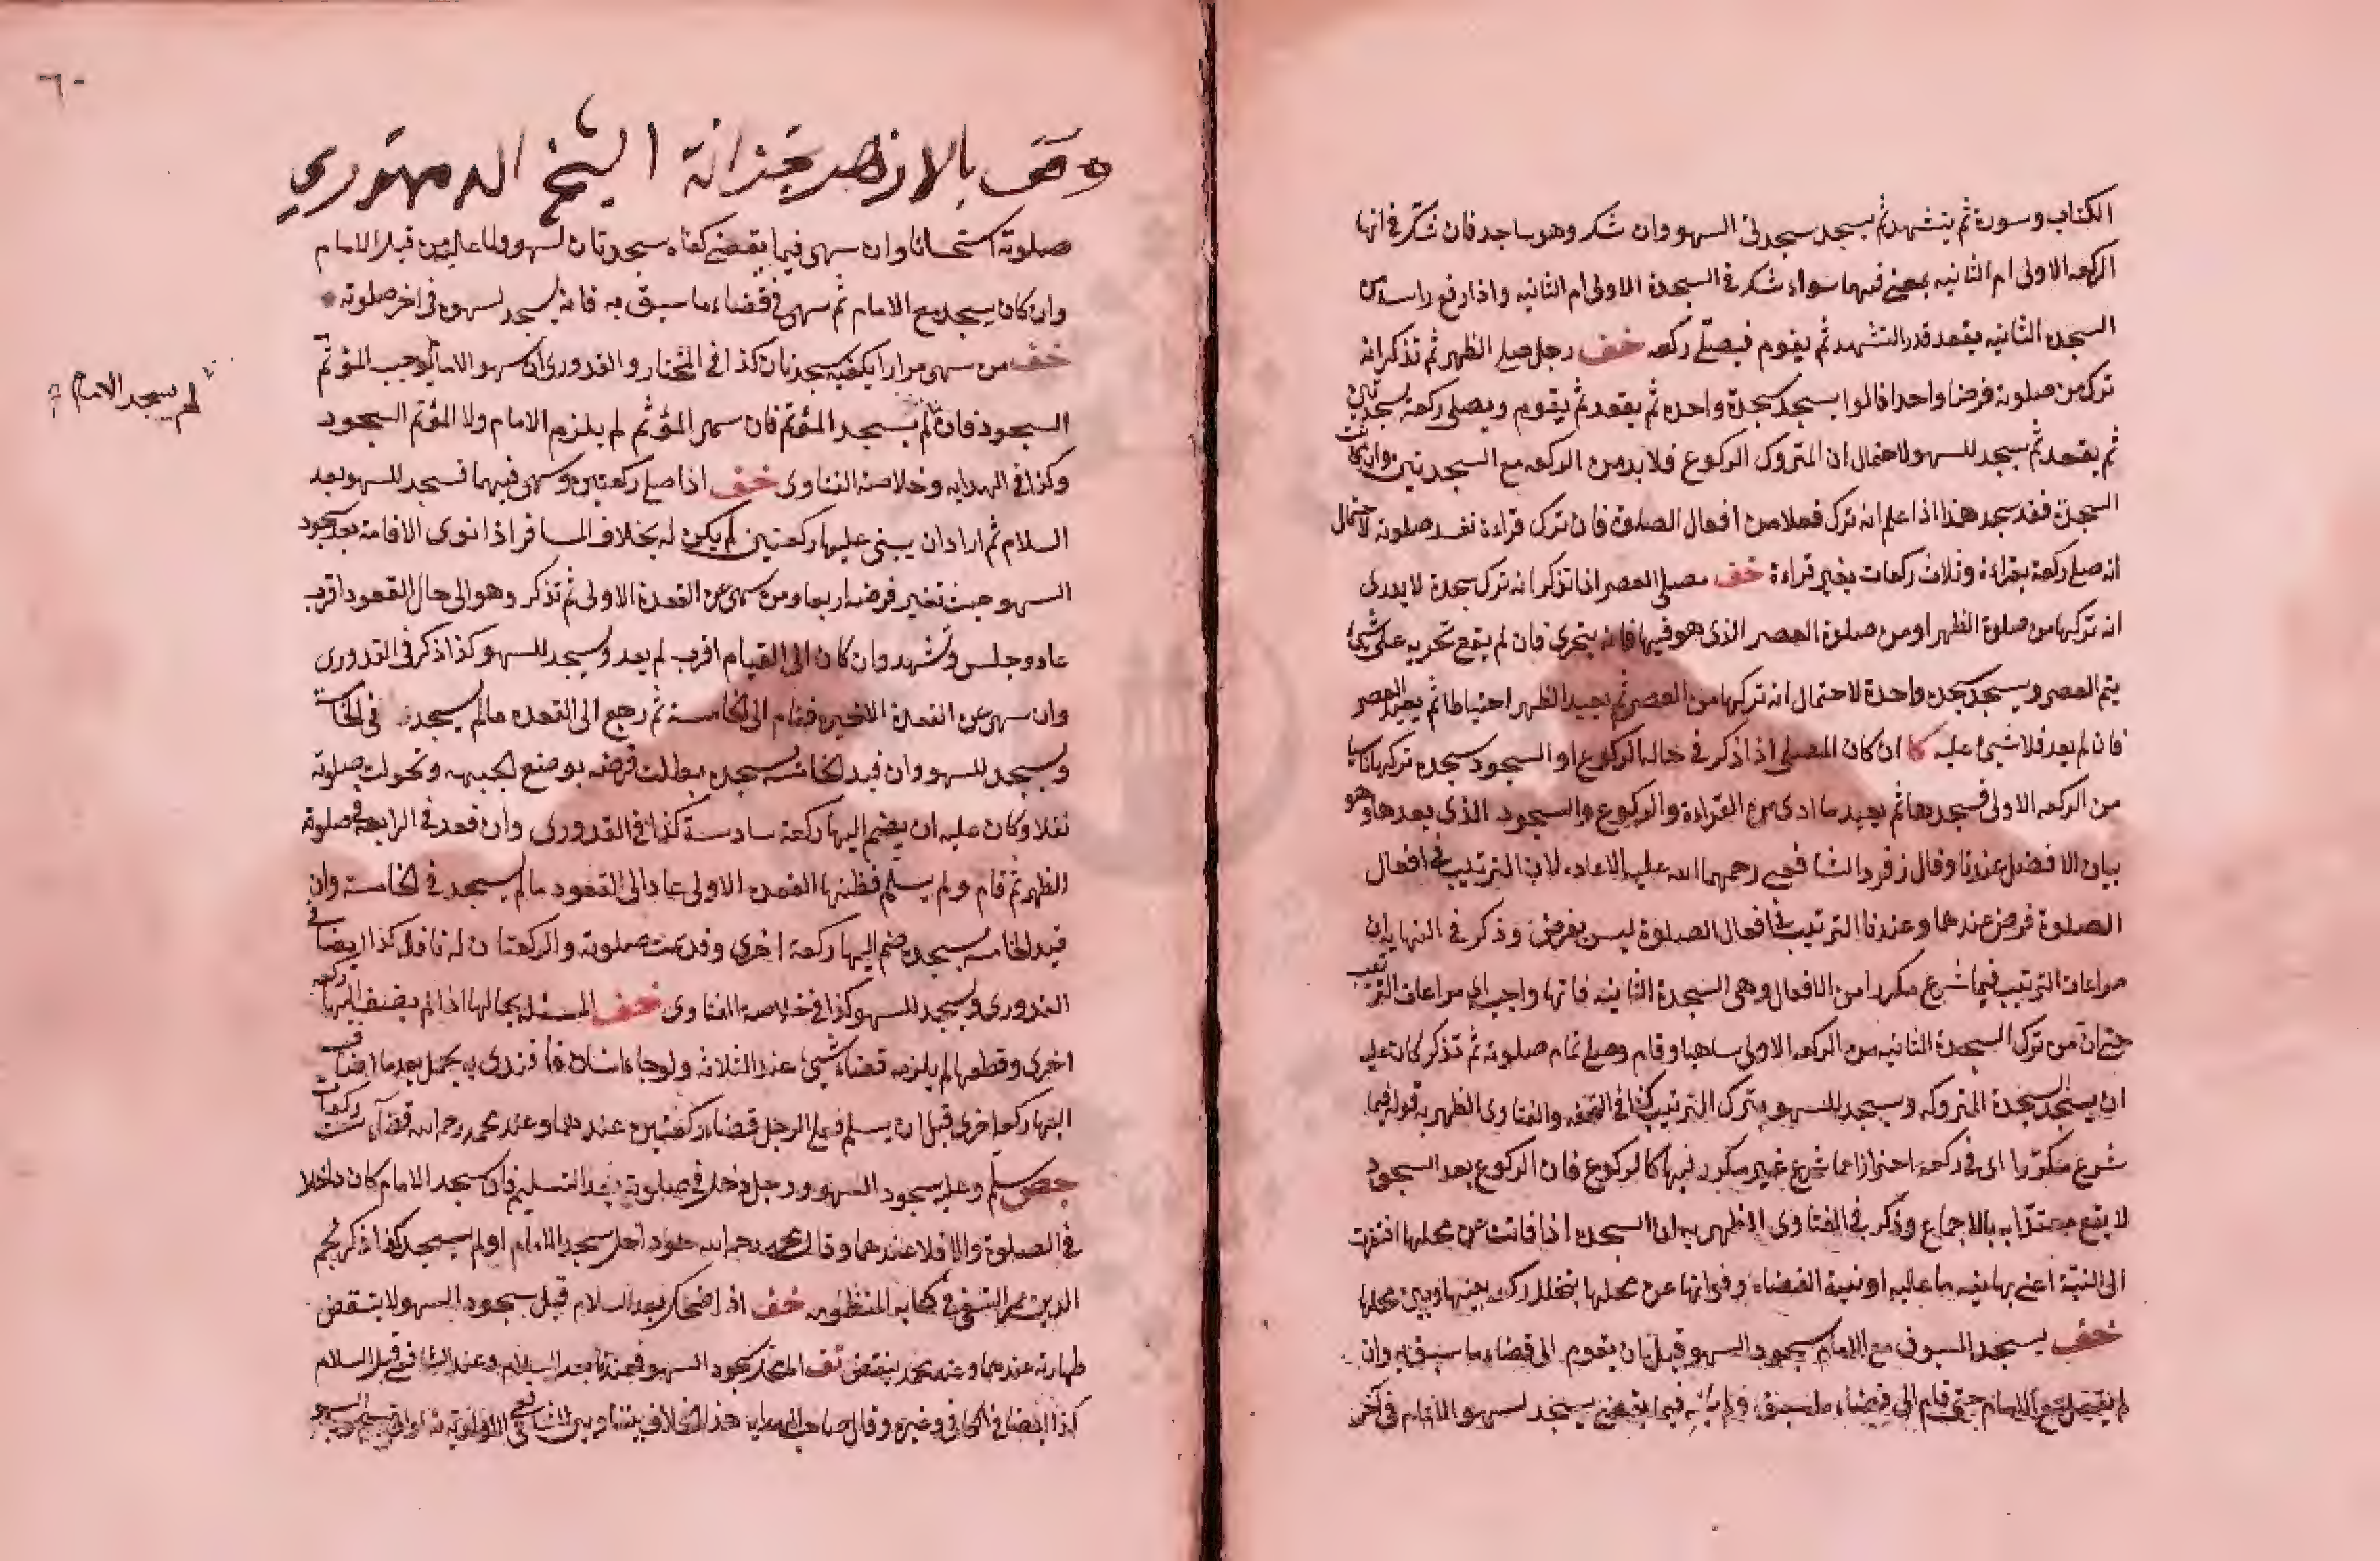 الكتاب وسورة ثم يتشهد ثم يسجد سجدتى السهو وان شك وهو ساجد فان شك فى انها
الركعه الاولى ام الثانيه يمضى فيهما سواء شك فى السجدة الاولى ام الثانيه واذا رفع راسه من
السجده الثانيه يقعد قدر التشهد ثم يقوم فيصلى ركعه خف رجل صلى الظهر ثم تذكر انه
ترك من صلوته فرضا واحدا قالوا يسجد سجدة واحده ثم يقعد ثم يقوم ويصلى ركعة بسجدتين
ثم يقعد ثم يسجد للسهو لاحتمال ان المتروك الركوع فلا بد من الركعه مع السجدتين وان كانت
السجدة فقد سجد هذا اذا علم انه ترك فعلا من افعال الصلوة فان ترك قراءة تفسد صلوته لاحتمال
انه صلى ركعة بقراءة وثلاث ركعات بغير قراءة خف مصلى العصر اذا تذكر انه ترك سجدة لا يدرى
انه تركها من صلوة الظهر او من صلوة العصر الذى هو فيها فانه يتحرى فان لم يقع تحريه على شئ
يتم العصر ويسجد سجده واحدة لاحتمال انه تركها من العصر ثم يعيد الظهر احتياطا ثم يعيد العصر
فان لم يعد فلا شئ عليه كا ان كان المصلى اذا ذكر فى حالة الركوع او السجود سجده تركها ناسيا
من الركعه الاولى فسجدها ثم يعيد ما ادى من القراءة والركوع والسجود الذى بعدها وهو
بيان الافضل عندنا وقال زفر والشافعى رحمهما الله عليه الاعاده لان الترتيب فى افعال
الصلوة فرض عندهما وعندنا الترتيب فى افعال الصلوة ليس بفرض وذكر فى النهايه ان
مراعات الترتيب فيما شرع مكررا من الافعال وهى السجدة الثانيه فانها واجب اى مراعات الترتيب
حتى ان من ترك السجدة الثانيه من الركعه الاولى ساهيا وقام وصلى تمام صلوته ثم تذكر كان عليه
ان يسجد السجدة المتروكه ويسجد للسهو بترك الترتيب كذا فى التحفه والفتاوى الظهيريه قوله فيما
شرع مكررا اى فى ركعة احترازا عما شرع غير مكرر فيها كالركوع فان الركوع بعد السجود
لا يقع معتدا به بالاجماع وذكر فى الفتاوى الظهيريه ان السجده اذا فاتت عن محلها افتقرت
الى النية اعنى بها نيه ما عليه او نية القضاء وفواتها عن محلها بتخلل ركعه بينها وبين محلها
خف يسجد المسبوق مع الامام سجود السهو قبل ان يقوم الى قضاء ما سبق به وان
لم يسجد مع الامام حتى قام الى قضاء ما سبق ولم يسه فيما يقضى يسجد لسهو الامام فى آخر
٦٠
وقف بالازهر بخزانة الشيخ الدمنهوري
صلوته استحسانا وان سهى فيما يقضى كفاه سجدتان لسهوه ولما عليه من قبل الامام
وان كان يسجد مع الامام ثم سهى فى قضاء ما سبق به فانه يسجد لسهوه فى اخر صلوته
خف من سهى مرارا يكفيه سجدتان كذا فى المختار والقدورى ان سهو الامام يوجب المؤتم
السجود فان لم يسجد المؤتم فان سهى المؤتم لم يلزم الامام ولا المؤتم السجود
لم يسجد الامام
وكذا فى الهدايه وخلاصة الفتاوى خف اذا صلى ركعتين وسهى فيهما فسجد للسهو بعد
السلام ثم اراد ان يبنى عليها ركعتين لم يكن له بخلاف المسافر اذا نوى الاقامة بعد سجود
السهو حيث تغير فرضه اربعا ومن سهى عن القعدة الاولى ثم تذكر وهو الى حال القعود اقرب
عاد وجلس وتشهد وان كان الى القيام اقرب لم يعد ويسجد للسهو كذا ذكر فى القدورى
وان سهى عن القعدة الاخيره فقام الى الخامسة ثم رجع الى القعده ما لم يسجد فى الخامسة
ويسجد للسهو وان قيد الخامسه بسجده بطلت فرضه بوضع الجبهه وتحولت صلوته
نفلا وكان عليه ان يضم اليها ركعة سادسة كذا فى القدورى وان قعد فى الرابعة فى صلوة
الظهر ثم قام ولم يسلم فظنها القعده الاولى عاد الى القعود ما لم يسجد فى الخامسة وان
قيد الخامسه بسجده ضم اليها ركعة اخرى وقد تمت صلوته والركعتان له نافلة كذا ايضا فى
القدورى ويسجد للسهو كذا فى خلاصة الفتاوى خف المسئله بحالها اذا لم يضف اليها ركعه
اخرى وقطعها لم يلزمه قضاء شئ عند الثلاثه ولو جاء انسان فاقتدى به بعد ما اضاف
اليها ركعه اخرى قبل ان يسلم فعلى الرجل قضاء ركعتين عندهما وعند محمد رحمه الله قضاء ست ركعات
جص سلم وعليه سجود السهو ورجل دخل فى صلوته بعد التسليم فان سجد الامام كان داخلا
فى الصلوة والا فلا عندهما وقال محمد رحمه الله هو داخل سجد الامام او لم يسجد كذا ذكر نجم
الدين عمر النسفى فى كتابه المنظومه خف اذا ضحك بعد السلام قبل سجود السهو لا ينتقض
طهارته عندهما وعند محمد ينتقض تف سجود السهو فعندنا بعد السلام وعند الشافعى قبل السلام
كذا ايضا فى الكافى وغيره وقال صاحب الهدايه هذا الخلاف بيننا وبين الشافعى فى الاولوية